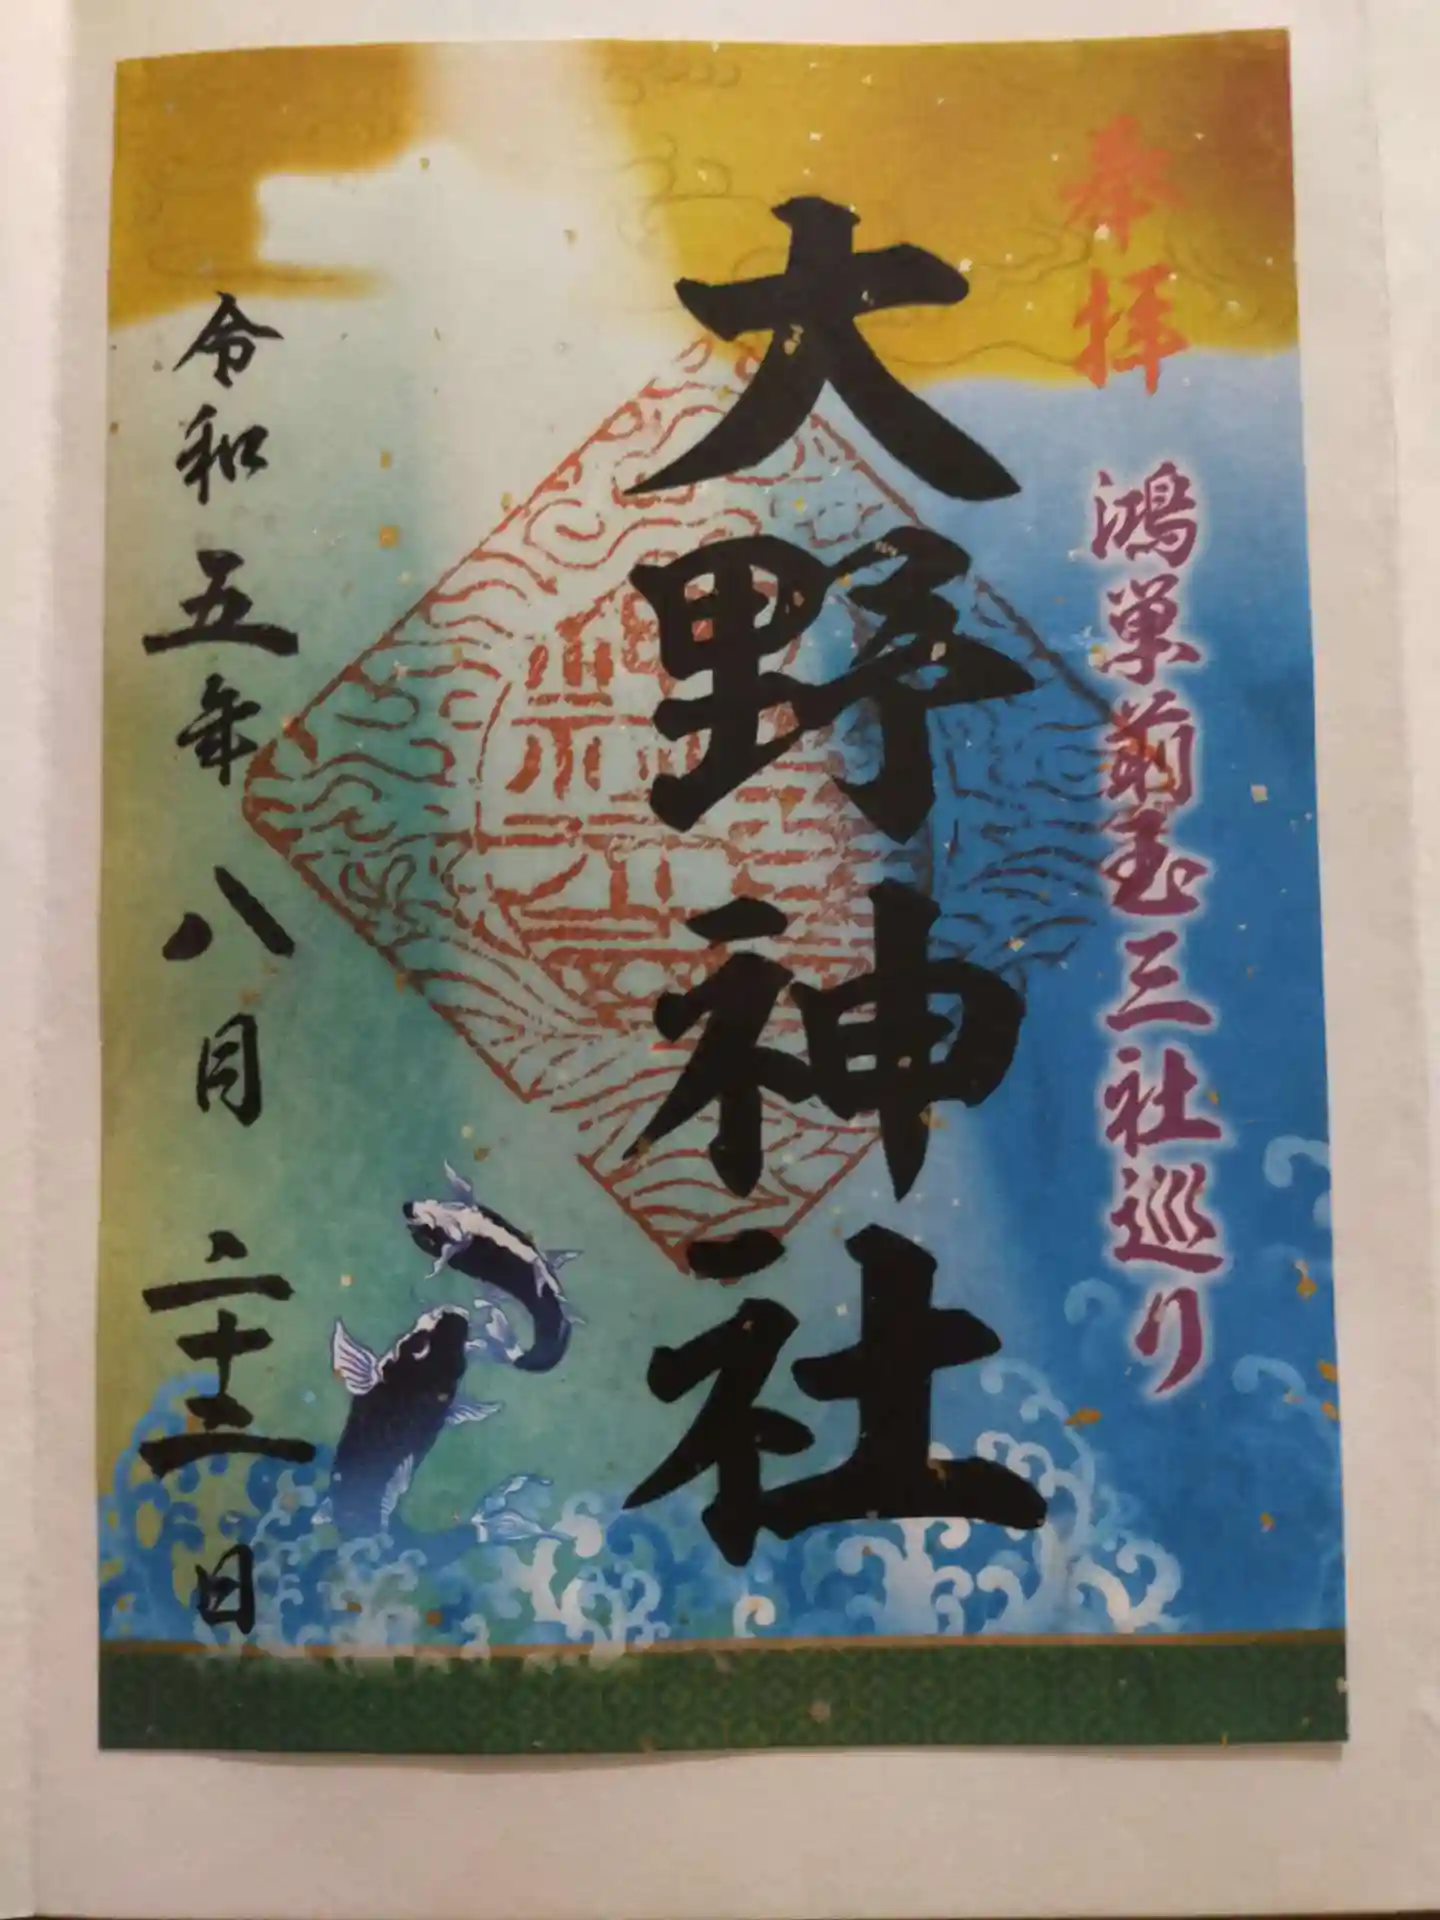 奉拝
鴻巣前玉三社巡り
大野神社
令和五年八月二十二日